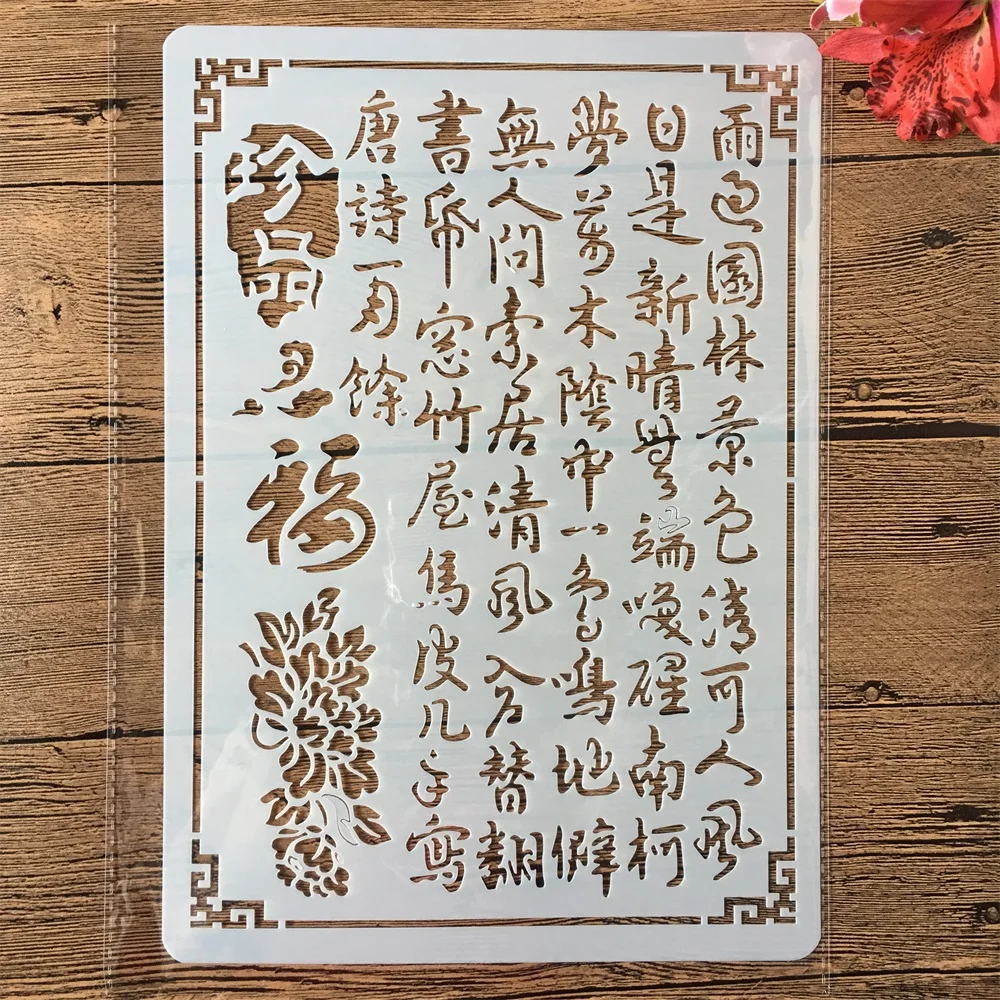 雨園林景色清可人風
日是新晴無端喚醒南柯
夢萬木陰中一鳥鳴地僻
無人問索居清風入戶替翻
書帋窓竹屋皮几手寫
唐詩一餘
珍品
福